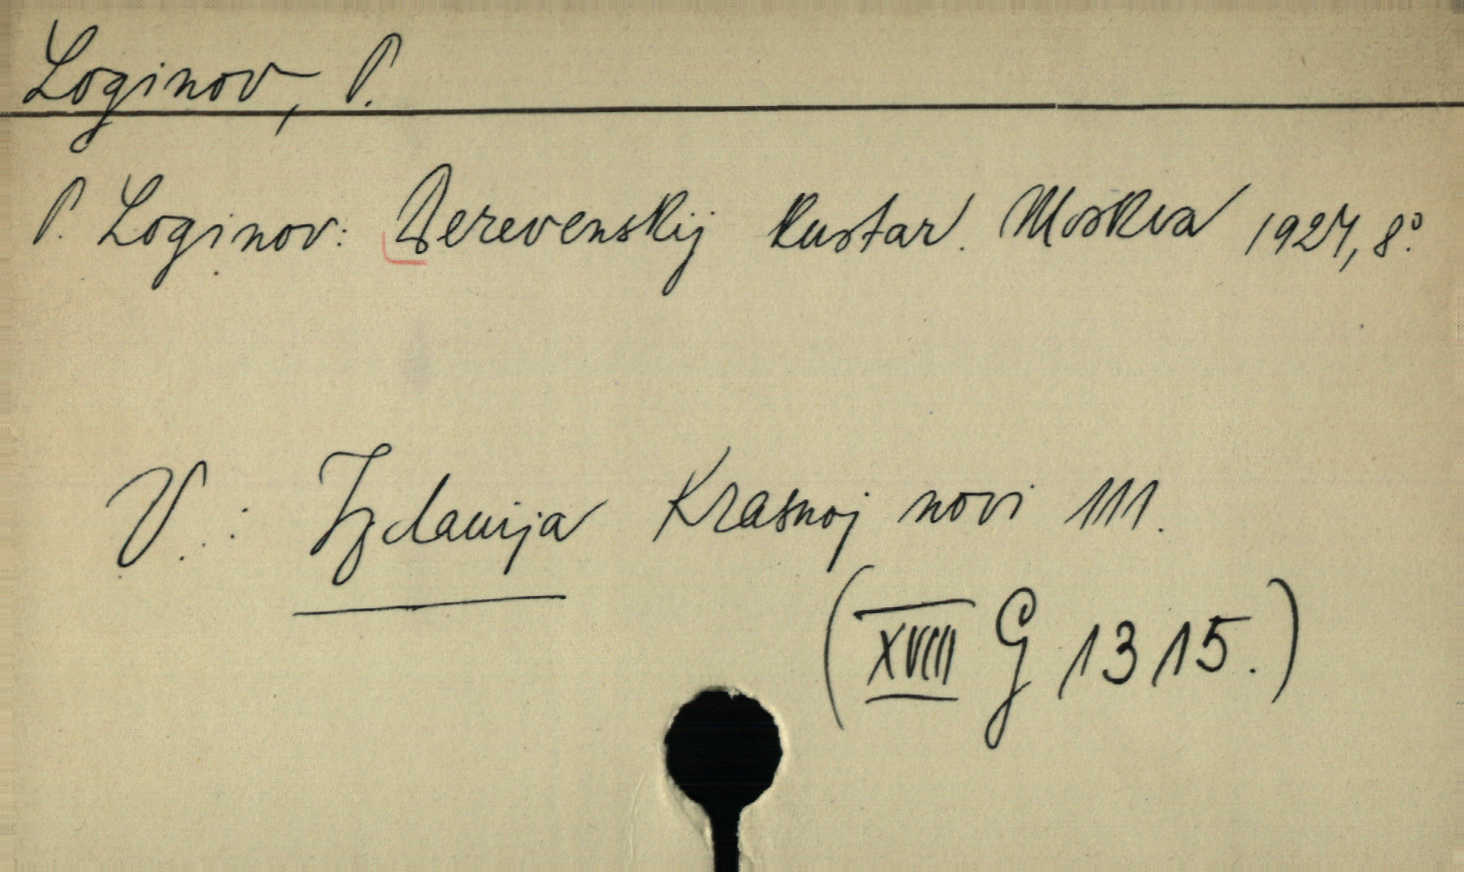 Loginov, P.
P. Loginov: Derevenskij kustar. Moskva 1924, 8°.
V.: Izdanija Krasnoj novi 111.
(XVIII G 1315.)